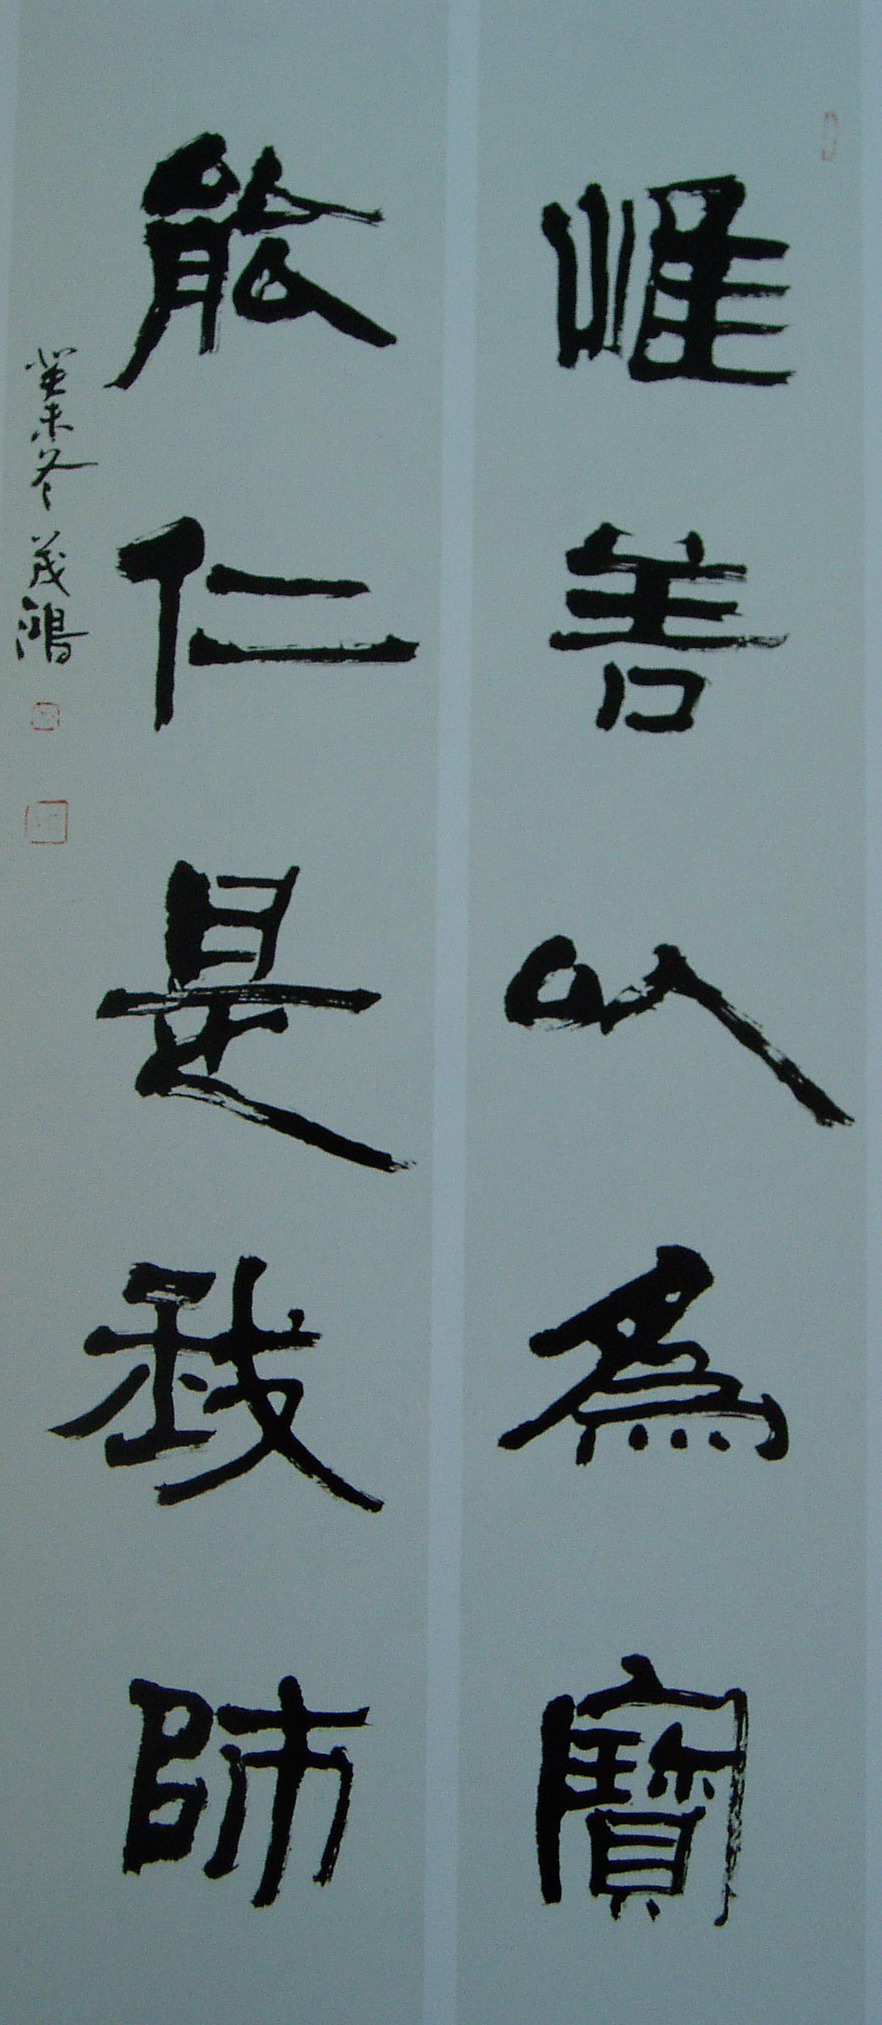 惟善以為寶
能仁是我師
癸未冬茂鴻